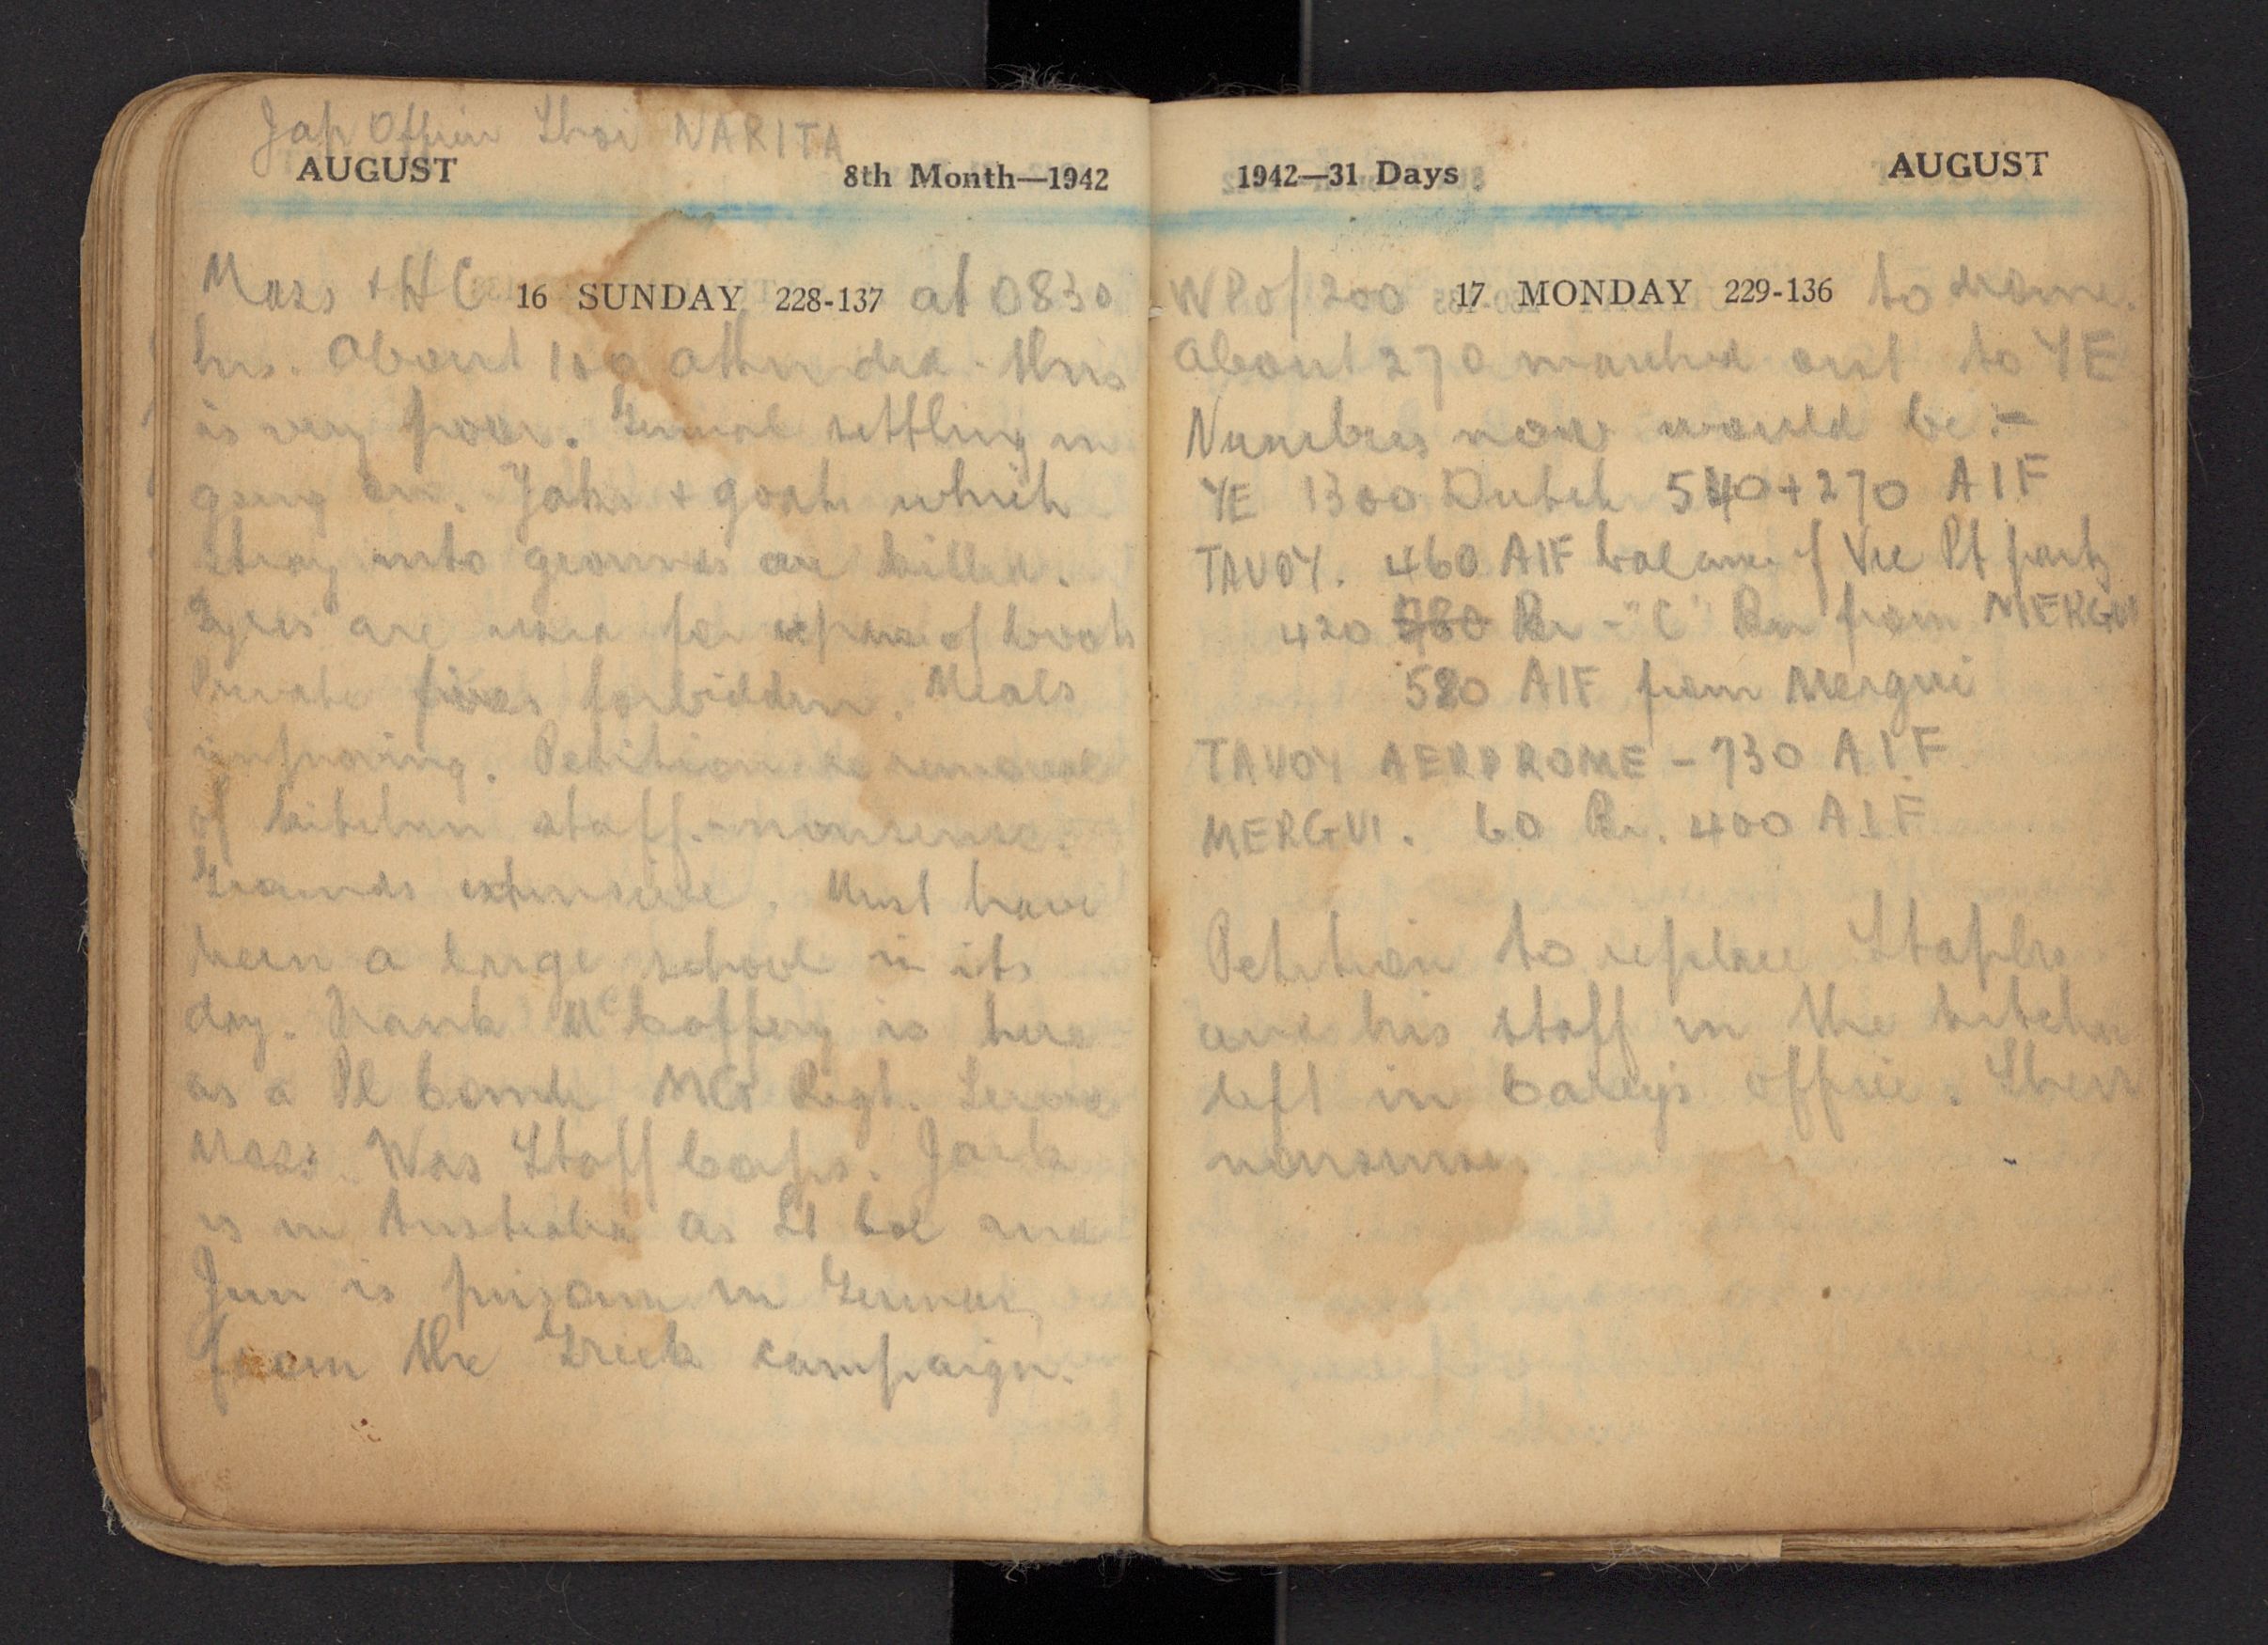 Jap Officer Shoi NARITA
AUGUST 8th Month—1942
Mass + H C 16 SUNDAY 228-137 at 0830
hrs. About 100 attended. This
is very poor. General settling in
going on. Yaks + goats which
stray into grounds are killed.
Tyres are used for repair of boots
Private fires forbidden. Meals
improving. Petition re removal
of kitchen staff. - nonsense.
Grounds extensive. Must have
been a large school in its
day. Frank McCaffery is here
as a Pl Comdr MG Regt. Served
Mass. Was Staff Corps. Jack
is in Australia as Lt Col and
Jim is prisoner in Germany
from the Greek campaign.
1942—31 Days AUGUST
WP of 200 17 MONDAY 229-136 to drome.
About 270 marched out to YE
Numbers now would be :-
YE 1300 Dutch 540+270 AIF
TAVOY. 460 AIF balance of Vic Pt party
420 Br - "C" Bn from MERGUI
580 AIF from Mergui
TAVOY AERDROME - 730 AIF
MERGUI. 60 Br. 400 AIF
Petition to replace Staples
and his staff in the kitchen
left in Carey's office. Sheer
nonsense.